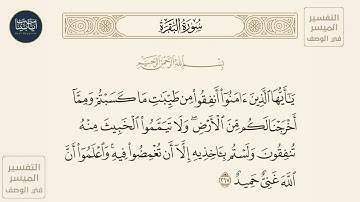 سُورَةُ البَقَرَةِ
التفسير
الميسر
في الوصف
بِسْمِ اللَّهِ الرَّحْمَٰنِ الرَّحِيمِ
يَٰٓأَيُّهَا ٱلَّذِينَ ءَامَنُوٓا۟ أَنفِقُوا۟ مِن طَيِّبَٰتِ مَا كَسَبْتُمْ وَمِمَّآ
أَخْرَجْنَا لَكُم مِّنَ ٱلْأَرْضِ ۖ وَلَا تَيَمَّمُوا۟ ٱلْخَبِيثَ مِنْهُ
تُنفِقُونَ وَلَسْتُم بِـَٔاخِذِيهِ إِلَّآ أَن تُغْمِضُوا۟ فِيهِ ۚ وَٱعْلَمُوٓا۟ أَنَّ
ٱللَّهَ غَنِىٌّ حَمِيدٌ ٢٦٧
التفسير
الميسر
في الوصف